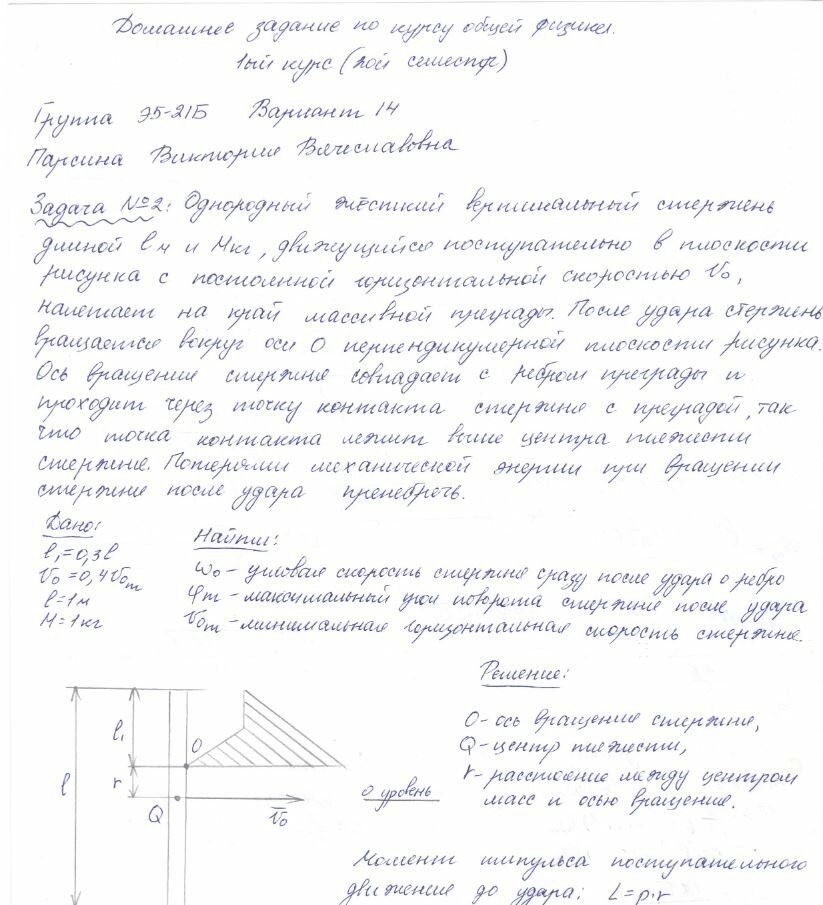 Домашнее задание по курсу общей физики.
1ый курс (2ой семестр)
Группа Э5-21Б Вариант 14
Парсина Виктория Вячеславовна
Задача №2: Однородный жёсткий вертикальный стержень
длиной l м и M кг, движущийся поступательно в плоскости
рисунка с постоянной горизонтальной скоростью V₀,
налетает на край массивной преграды. После удара стержень
вращается вокруг оси O перпендикулярной плоскости рисунка.
Ось вращения стержня совпадает с ребром преграды и
проходит через точку контакта стержня с преградой, так
что точка контакта лежит выше центра тяжести
стержня. Потерями механической энергии при вращении
стержня после удара пренебречь.
Дано:
l₁=0,3l
V₀=0,4V₀ₘ
l=1м
M=1кг
Найти:
ω₀ - угловая скорость стержня сразу после удара о ребро
φm - максимальный угол поворота стержня после удара
V₀ₘ - минимальная горизонтальная скорость стержня.
Решение:
O - ось вращения стержня,
Q - центр тяжести,
r - расстояние между центром
масс и осью вращения.
l
l₁
r
O
Q
V̅₀
0 уровень
Момент импульса поступательного
движения до удара: L=p·r